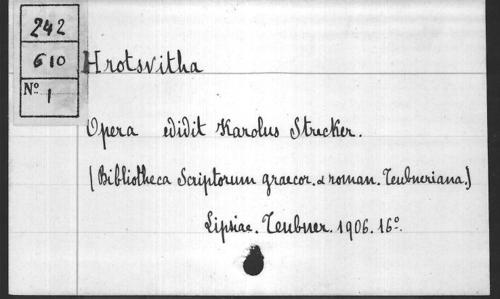 242
610
No 1
Hrotsvitha
Opera edidit Karolus Strecker.
(Bibliotheca Scriptorum graecor. & roman. Teubneriana.)
Lipsiae. Teubner. 1906. 16o.